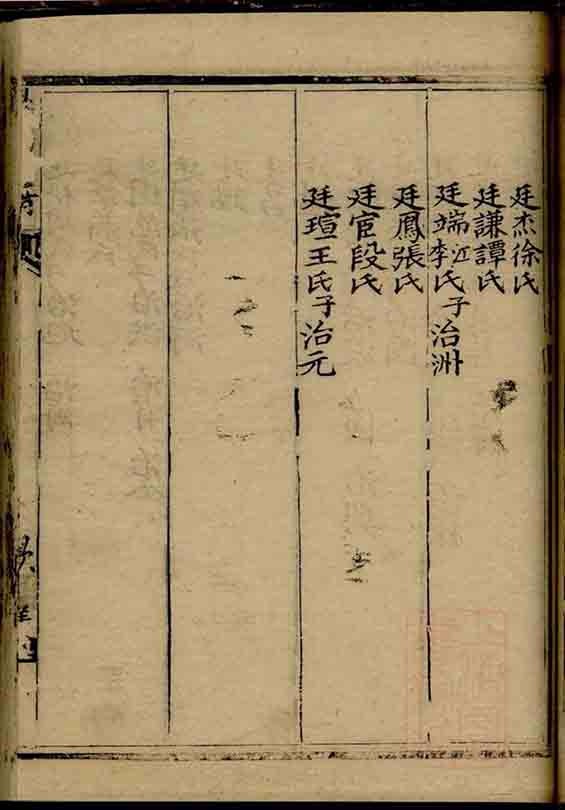 廷杰徐氏
廷謙譚氏
廷端李江氏子治洲
廷鳳張氏
廷宦段氏
廷瑄王氏子治元